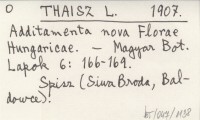 O THAISZ L. 1907.
Additamenta nova Florae
Hungaricae. — Magyar Bot.
Lapok 6: 166-169.
Spisz (Siwa Broda, Bal-
dowce).